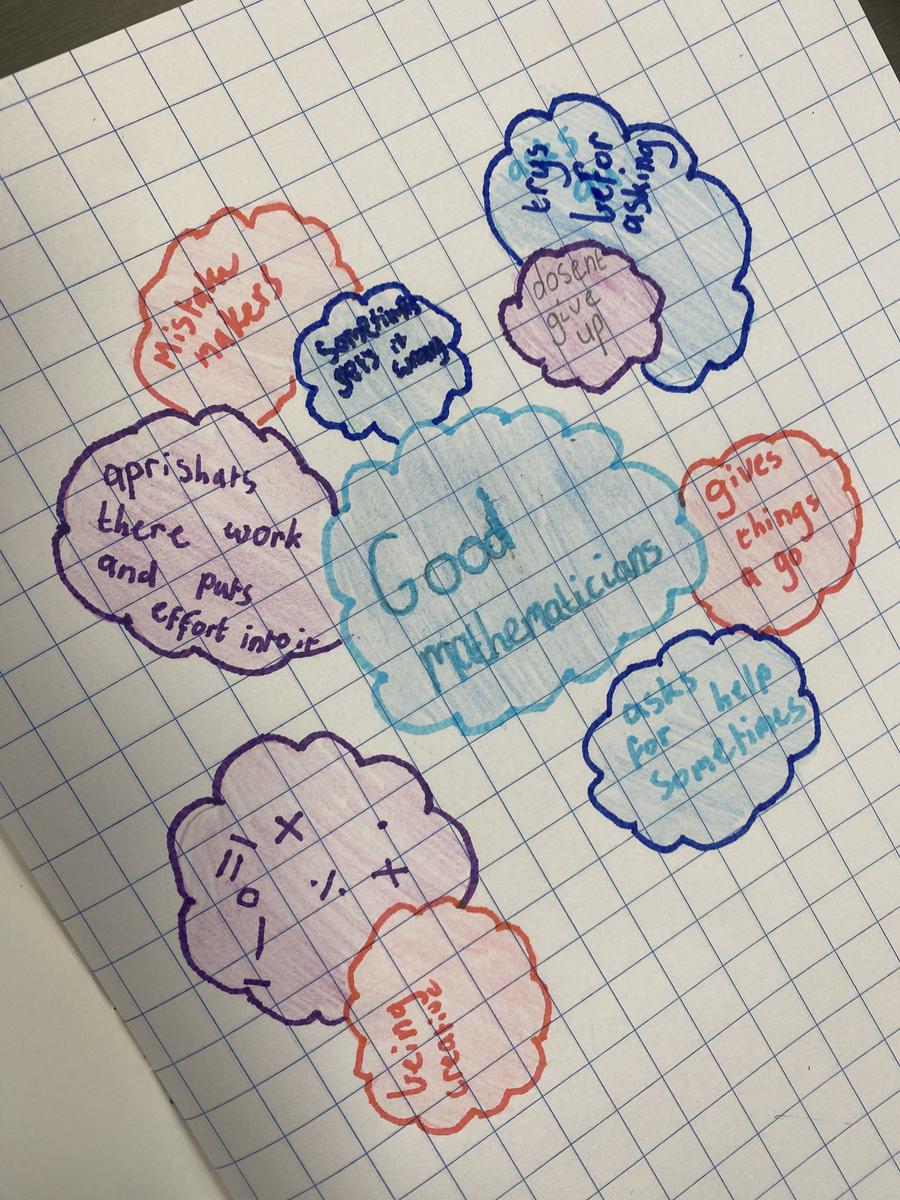 trys
befor
asking
dosent
give
up
Mistake
makers
Sometimes
gets it
wrong
aprishats
there work
and puts
effort into it
Good
mathematicians
gives
things
a go
asks
for help
Sometimes
being
creative